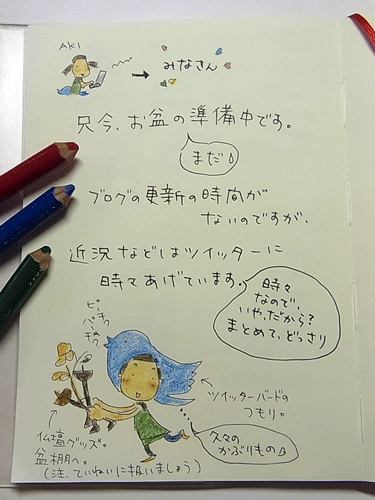 AKI
→ みなさん
只今、お盆の準備中です。
まだ
ブログの更新の時間が
ないのですが、
近況などはツイッターに
時々あげています。
時々
なので、
いや、だから?
まとめて、どっさり
ピーチク
パーチク
ツイッターバードの
つもり。
久々の
かぶりもの
仏壇グッズ。
盆棚へ。
(注、ていねいに扱いましょう)